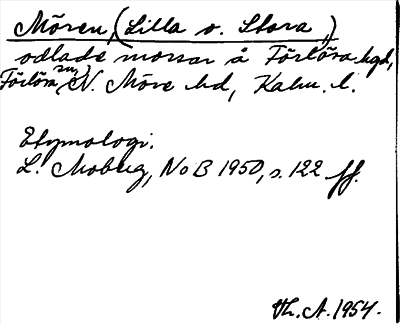 Mören, (Lilla o. Stora,)
odlade mossar å Förlösa hgd,
Förlösa sn, N. Möre hd, Kalm. l.
Etymologi.
L. Moberg, NoB 1950, s. 122 ff.
Th. A. 1954.